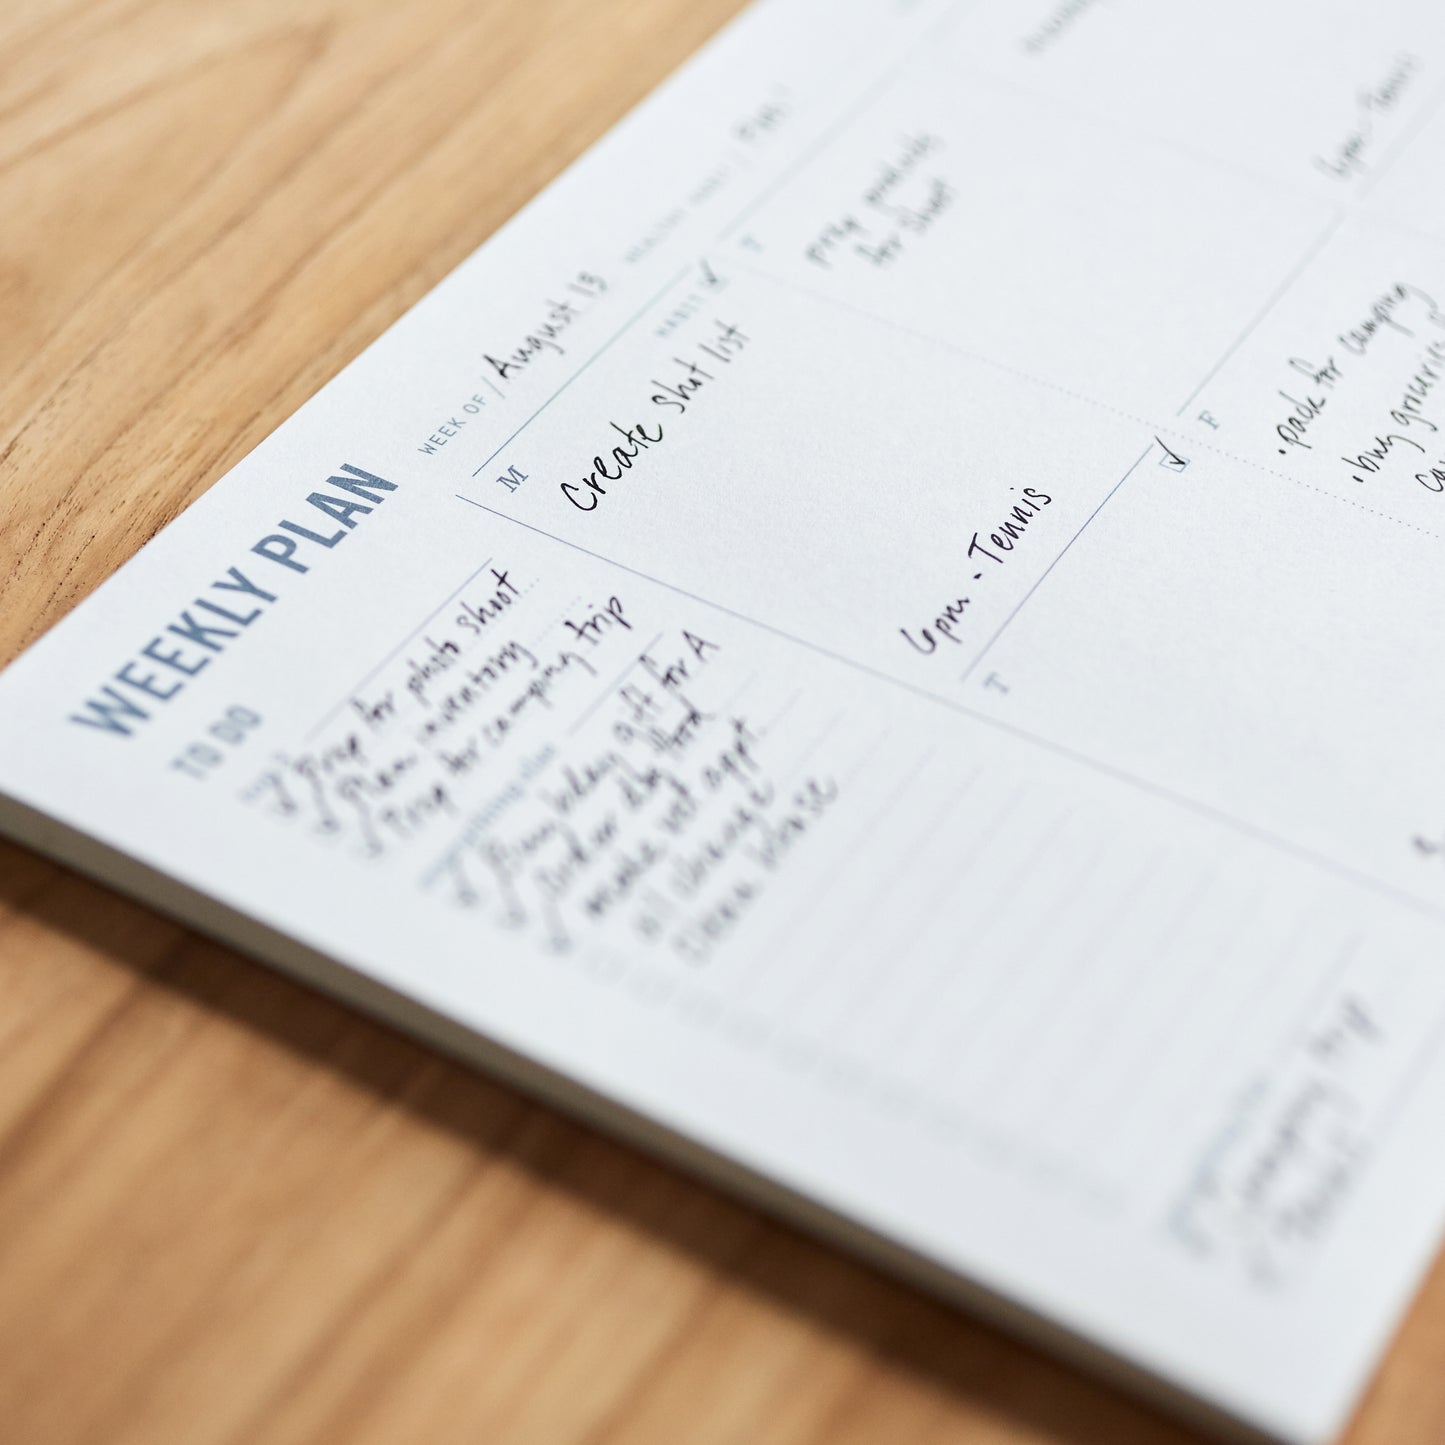 WEEKLY PLAN
WEEK OF / August 13
HEALTHY HABIT /
TO DO
Prep for photo shoot
Plan inventory
Prep for camping trip
everything else
Buy bday gift for A
order dog food
make vet appt.
oil change
Clean house
M
HABIT
Create shot list
6pm - Tennis
T
prep products
for shoot
6pm - Tennis
T
F
• pack for camping
• buy groceries
camping trip